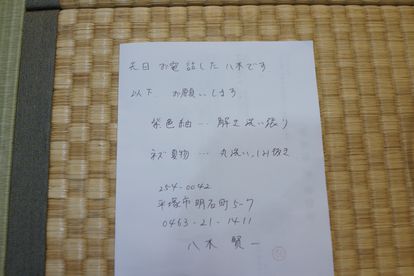 先日 お電話した 八木です
以下 お願いします
紫色紬 … 解き洗い張り
ネズ夏物 … 丸洗い、しみ抜き
254-0042
平塚市明石町5-7
0463-21-1411
八木 賢一